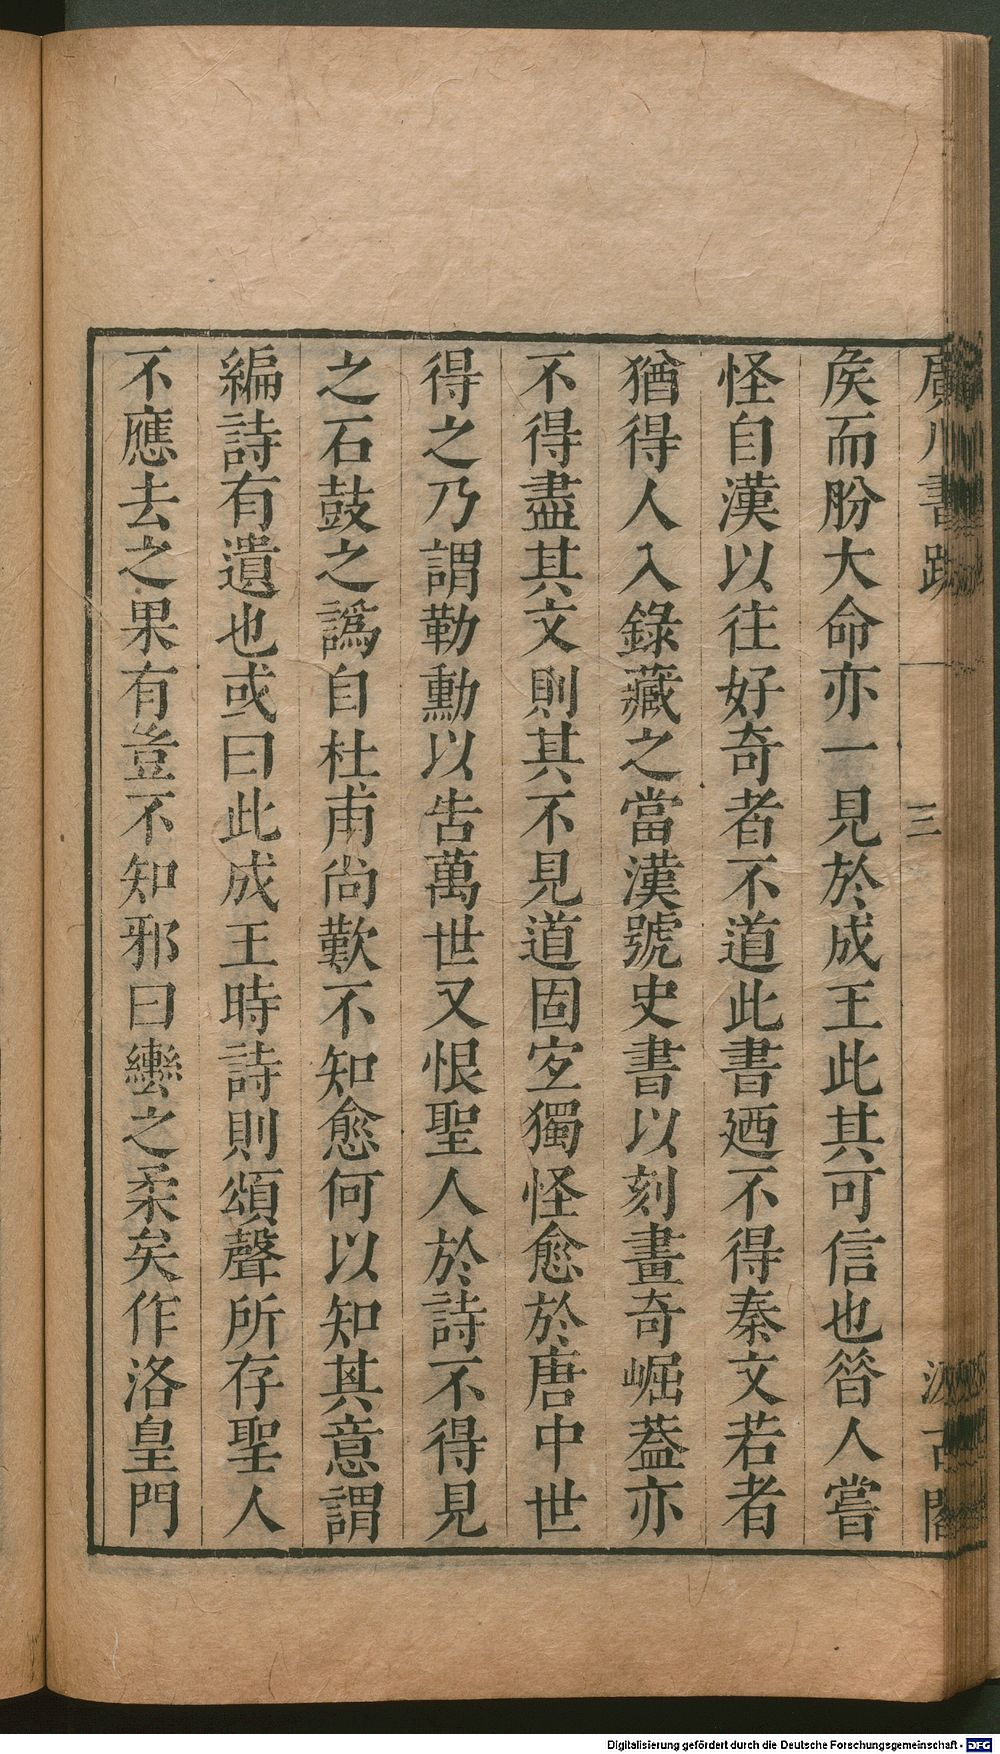 廣川書跋
三
汲古閣
矦而朌大命亦一見於成王此其可信也昝人嘗
怪自漢以往好奇者不道此書廼不得秦文若者
猶得人入錄藏之當漢號史書以刻畫奇崛葢亦
不得盡其文則其不見道固宜獨怪愈於唐中世
得之乃謂勒勳以告萬世又恨聖人於詩不得見
之石鼓之譌自杜甫尚歎不知愈何以知其意謂
編詩有遺也或曰此成王時詩則頌聲所存聖人
不應去之果有豈不知邪曰轡之柔矣作洛皇門
Digitalisierung gefördert durch die Deutsche Forschungsgemeinschaft - DFG